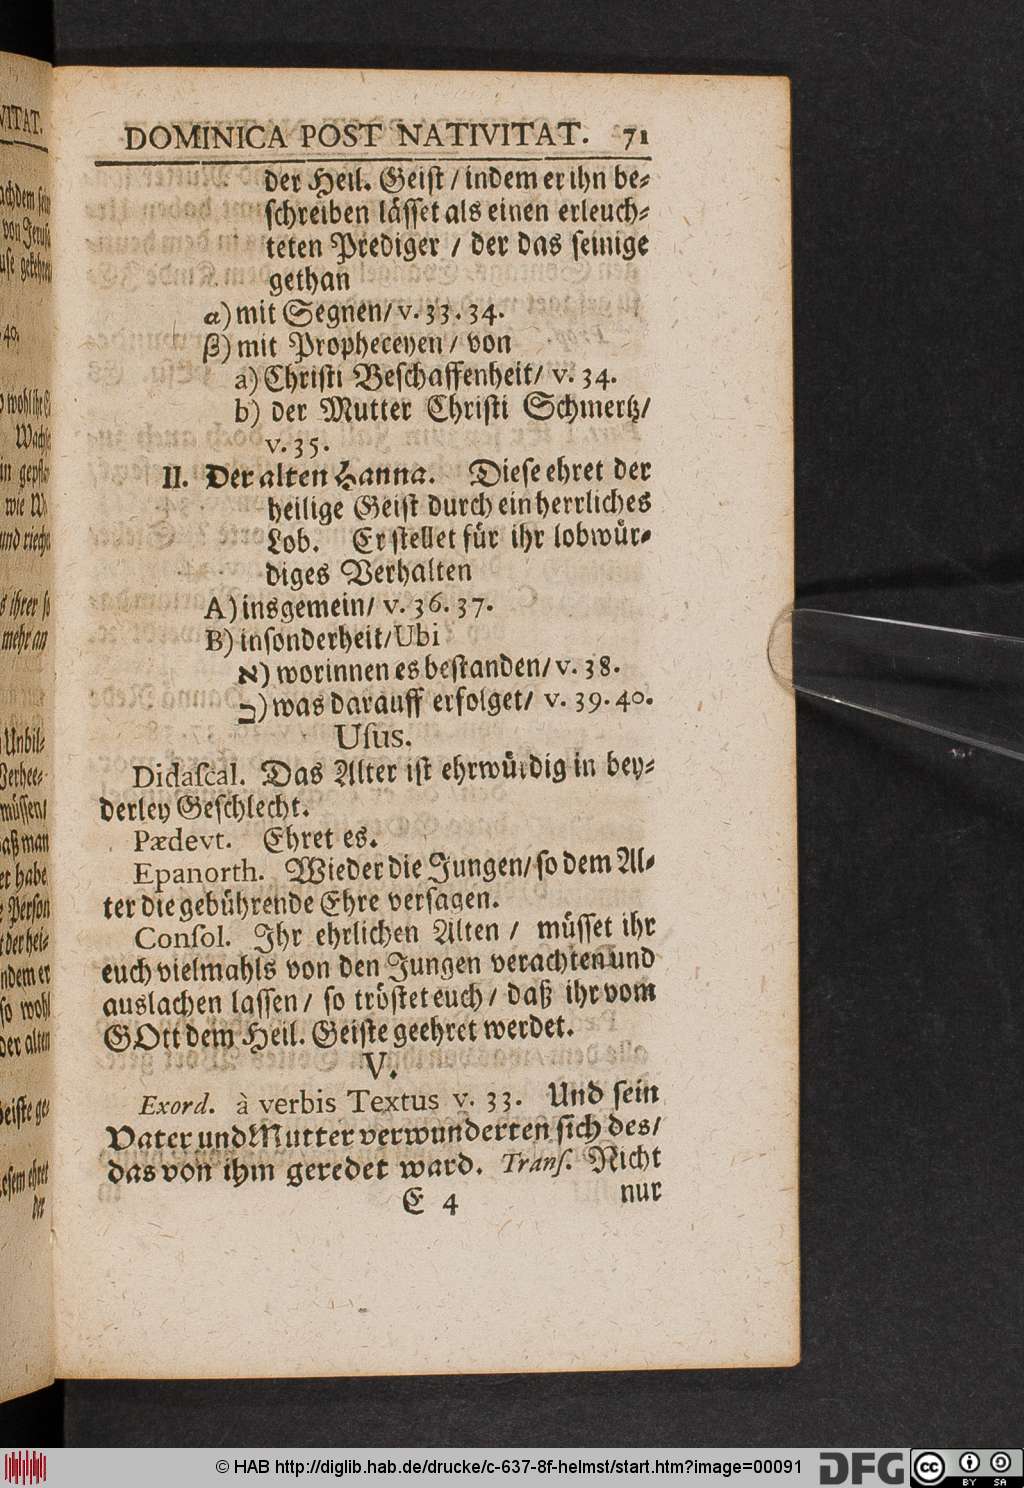 DOMINICA POST NATIVITAT. 71
der Heil. Geist / indem er ihn be⸗
schreiben lässet als einen erleuch⸗
teten Prediger / der das seinige
gethan
α) mit Segnen / v. 33. 34.
β) mit Propheceyen / von
a) Christi Beschaffenheit / v. 34.
b) der Mutter Christi Schmertz /
v. 35.
II. Der alten Hanna. Diese ehret der
heilige Geist durch ein herrliches
Lob. Er stellet für ihr lobwür⸗
diges Verhalten
A) insgemein / v. 36. 37.
B) insonderheit / Ubi
א) worinnen es bestanden / v. 38.
ב) was darauff erfolget / v. 39. 40.
Uſus.
Didaſcal. Das Alter ist ehrwürdig in bey⸗
derley Geschlecht.
Pædevt. Ehret es.
Epanorth. Wieder die Jungen / so dem Al⸗
ter die gebührende Ehre versagen.
Conſol. Ihr ehrlichen Alten / müsset ihr
euch vielmahls von den Jungen verachten und
auslachen lassen / so tröstet euch / daß ihr vom
GOtt dem Heil. Geiste geehret werdet.
V.
Exord. à verbis Textus v. 33. Und sein
Vater und Mutter verwunderten sich des /
das von ihm geredet ward. Tranſ. Nicht
E 4 nur
© HAB http://diglib.hab.de/drucke/c-637-8f-helmst/start.htm?image=00091
DFG
cc BY SA